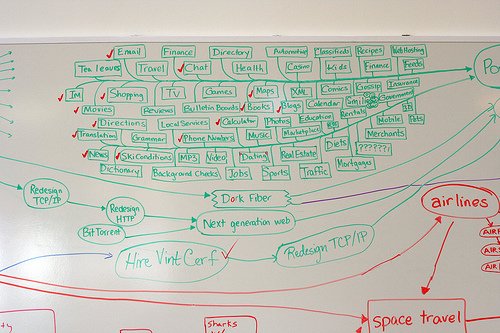 Email Finance Directory Automotive Classifieds Recipes WebHosting
Tea leaves Travel Chat Health Casino Kids Finance Feeds
IM Shopping TV Games Maps XML Comics Gossip Insurance
Movies Reviews Bulletin Boards Books Blogs Calendar Government
Directions Local Services Calculator Photos Education Rentals Mobile Pets
Translation Grammar Phone Numbers Music Marketplace Merchants
News Ski Conditions MP3 Video Dating Real Estate Diets ??????¿
Dictionary Background Checks Jobs Sports Traffic Mortgages
Po
Redesign
TCP/IP
Dark Fiber
airlines
Redesign
HTTP
Next generation web
BitTorrent
AIR
Hire Vint Cerf
Redesign TCP/IP
AIR
AIR
space travel
ty
Sharks